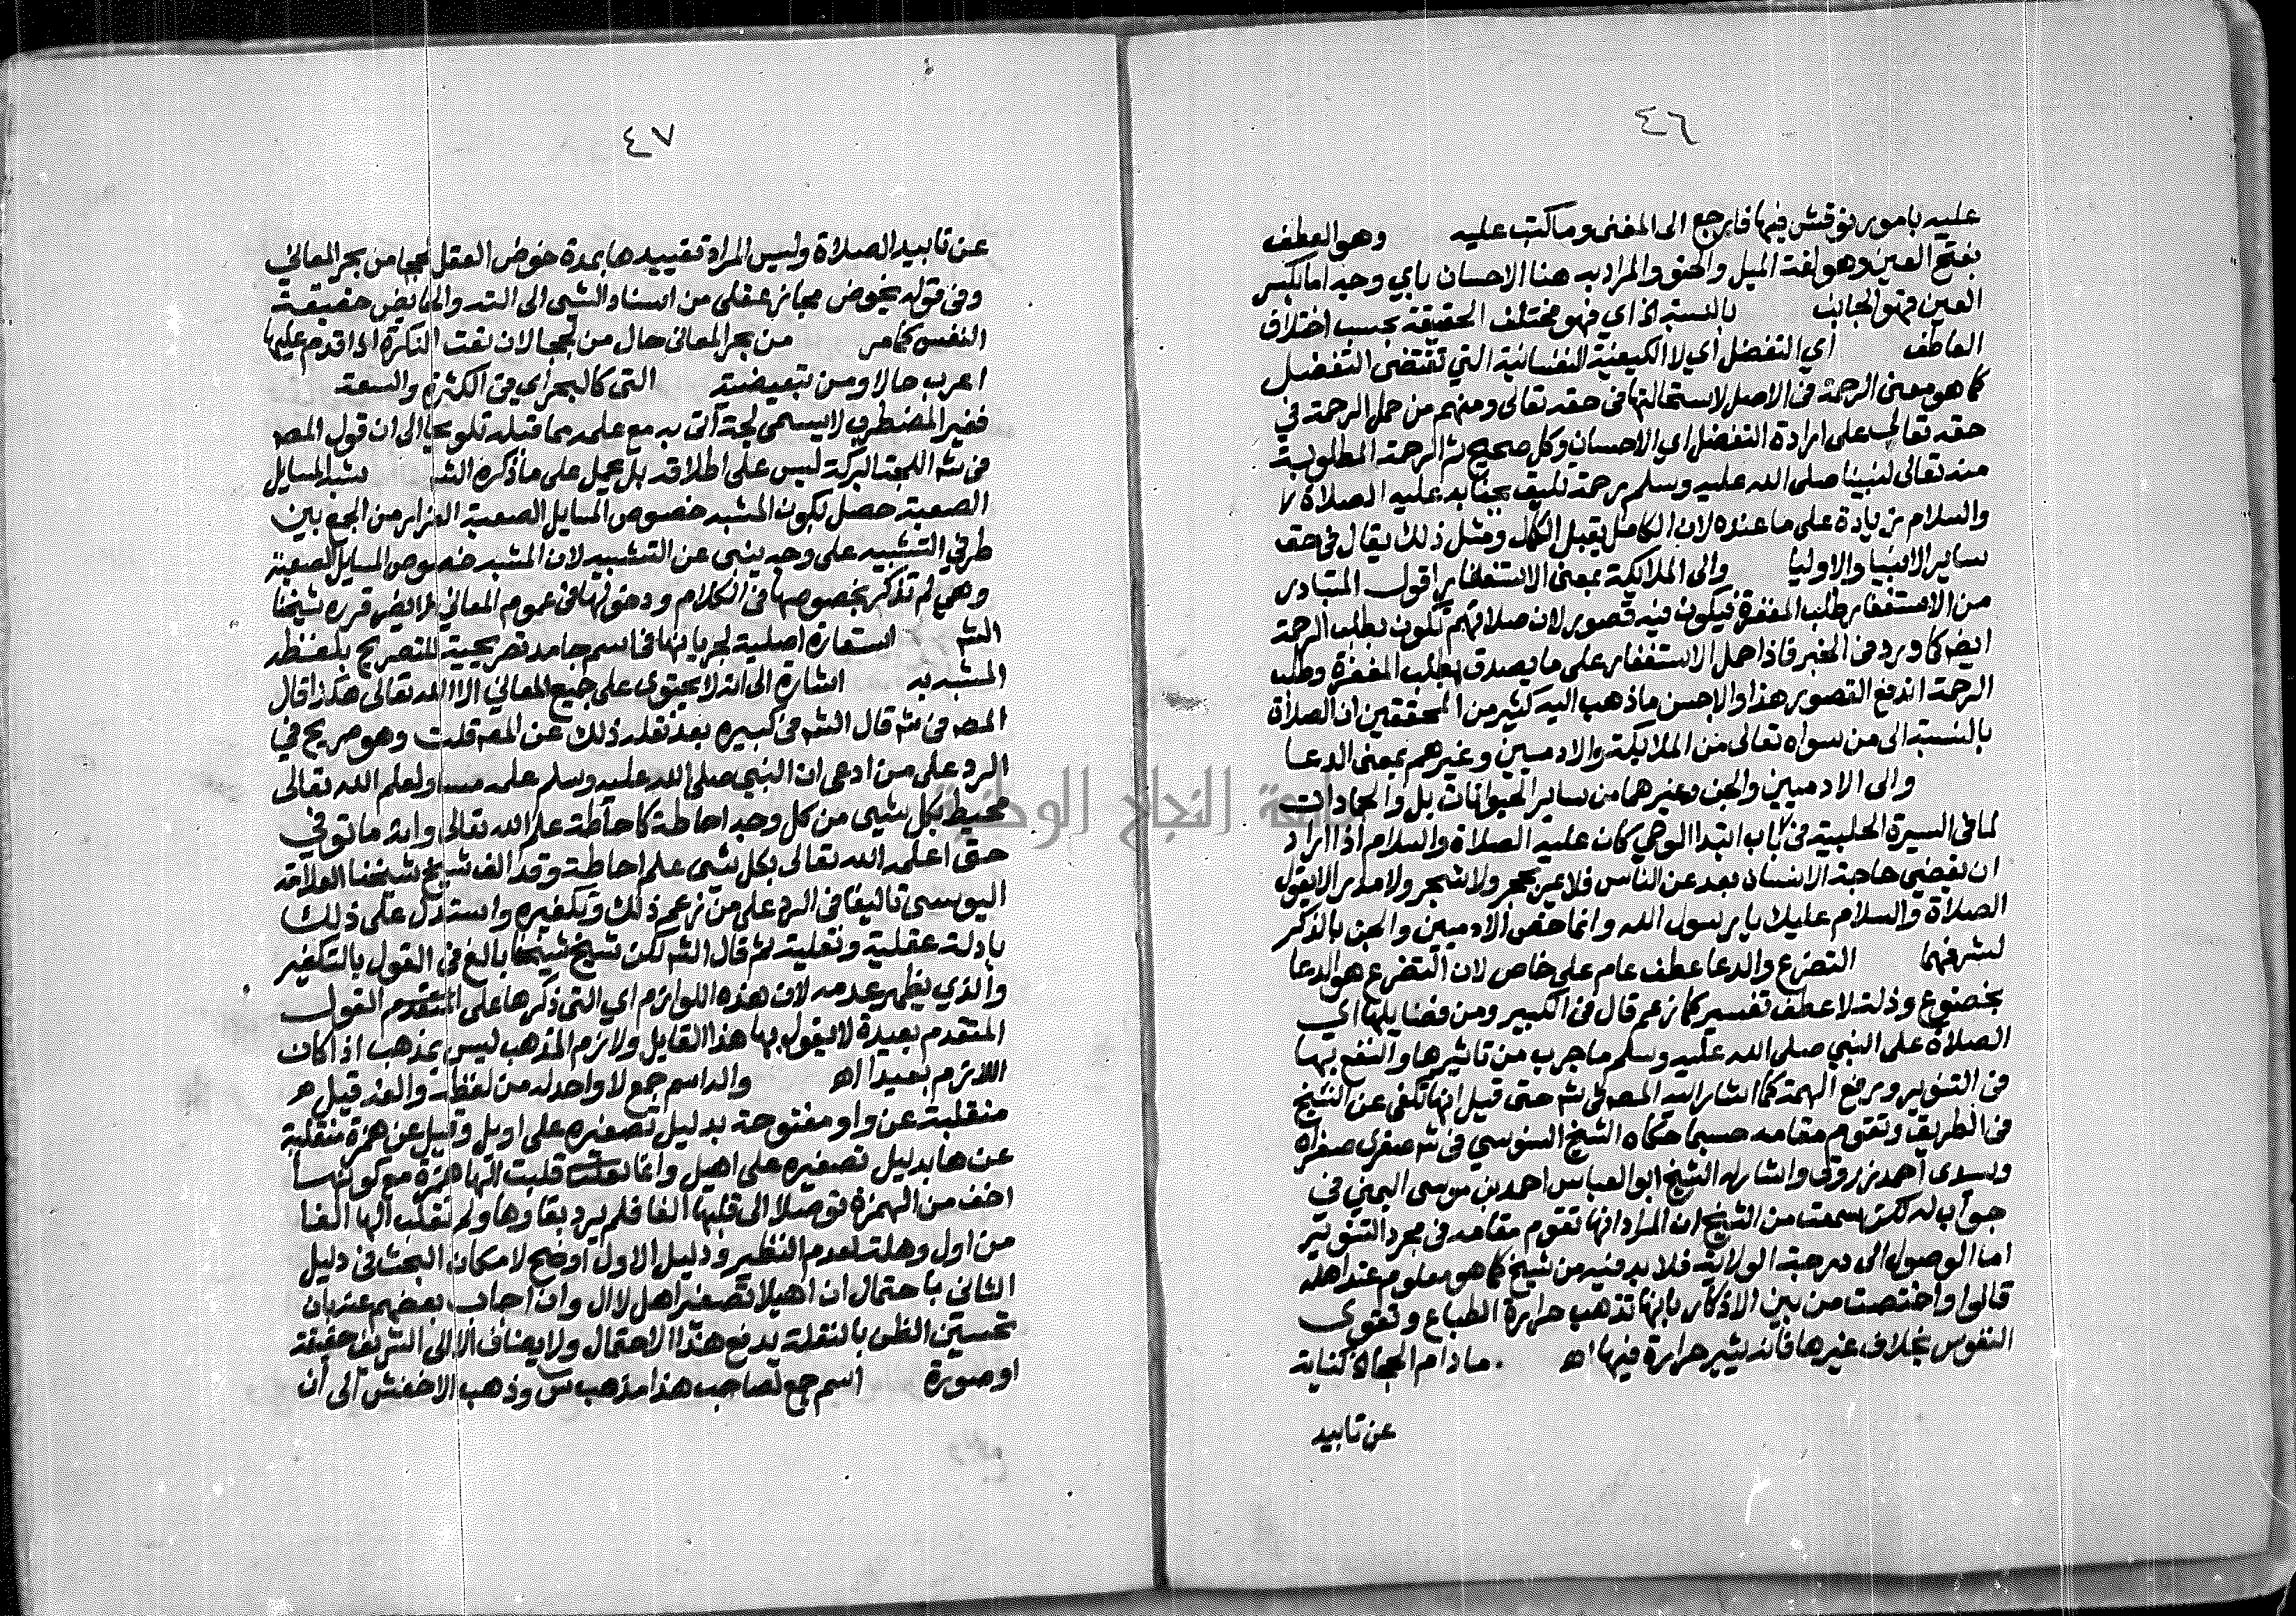 ٤٦
عليه بامور نوقش فيها فارجع الى المغنى وما كتب عليه وهو العطف
بفتح العين وهو لغة الميل والحنو والمراد به هنا الاحسان باي وجه اما بكسر
العين فهو الجانب بالنسبة اذ اي فهو مختلف الحقيقة بحسب اختلاف
العاطف اي التفضل اي لا الكيفية النفسانية التي تقتضى التفضل
كما هو معنى الرحمة فى الاصل لاستحالتها فى حقه تعالى ومنهم من حمل الرحمة في
حقه تعالى على ارادة التفضل اي الاحسان وكل صحيح ثم الرحمة المطلوبة
منه تعالى لنبينا صلى الله عليه وسلم رحمة تليق بجنابه عليه الصلاة
والسلام زيادة على ما عنده لان الكامل يقبل الكمال ومثل ذلك يقال في حق
ساير الانبيا والاوليا والى الملايكة بمعنى الاستغفار اقول المتبادر
من الاستغفار طلب المغفرة فيكون فيه قصور لان صلاتهم تكون بطلب الرحمة
ايض كما ورد فى الخبر فاذا حمل الاستغفار على ما يصدق بطلب المغفرة وطلب
الرحمة اندفع القصور هذا والاحسن ما ذهب اليه كثير من المحققين ان الصلاة
بالنسبة الى من سواه تعالى من الملايكة والادميين وغيرهم بمعنى الدعا
والى الادميين والجن وغيرهما من ساير الحيوانات بل والجمادات
لما فى السيرة الحلبية فى باب ابتدا الوحي كان عليه الصلاة والسلام اذا اراد
ان يقضي حاجة الانسان بعد عن الناس فلا يمر بحجر ولا شجر ولا مدر الا يقول
الصلاة والسلام عليك يا رسول الله وانما خص الادميين والجن بالذكر
لشرفهما التضرع والدعا عطف عام على خاص لان التضرع هو الدعا
بخضوع وذلة لا عطف تفسير كما زعم قال فى الكبير ومن فضايلها اي
الصلاة على النبي صلى الله عليه وسلم ما جرب من تاثيرها والنفع بها
فى التنوير ورفع الهمة كما اشار اليه المصه فى شه حتى قيل انها تكفى عن الشيخ
فى الطريق وتقوم مقامه حسبما حكاه الشيخ السنوسي فى شه صغرى صغراه
وسيدى احمد زروق واشار له الشيخ ابو العباس احمد بن موسى اليمني في
جواب له لكن سمعت من الشيخ ان المراد انها تقوم مقامه فى مجرد التنوير
اما الوصول الى درجة الولاية فلا بد فيه من شيخ كما هو معلوم عند اهله
قالوا واختصت من بين الاذكار بانها تذهب حرارة الطباع وتقوى
النفوس بخلاف غيرها فانه يثير حرارة فيها اهـ ما دام الحجاه كناية
عن تابيد
٤٧
عن تابيد الصلاة وليس المراد تقييدها بمدة خوض العقل لججا من بحر المعاني
وفى قوله يخوض مجاز عقلى من اسناد الشى الى الته والخايض حقيقة
النفس كما مر من بحر المعانى حال من لججا لان نعت النكرة اذا قدم عليها
اعرب حالا ومن تبعيضية التى كالبحر اي فى الكثرة والسعة
فغير المضطرب لا يسمى لجة اتى به مع علمه مما قبله تلويحا الى ان قول المصه
فى شه اللجة البركة ليس على اطلاقه بل يحمل على ما ذكره الشه شبه المسايل
الصعبة حصل بكون المشبه خصوص المسايل الصعبة الفرار من الجمع بين
طرفي التشبيه على وجه ينبى عن التشبيه لان المشبه خصوص المسايل الصعبة
وهي لم تذكر بخصوصها فى الكلام ودخولها فى عموم المعاني لا يضر قرره شيخنا
الشه استعارة اصلية لجريانها فى اسم جامد تصريحية للتصريح بلفظ
المشبه به اشارة الى انه لا يحتوى على جميع المعاني الا الله تعالى هكذا قال
المصه فى شه قال الشه فى كبيره بعد نقله ذلك عن المصه قلت وهو صريح في
الرد على من ادعى ان النبي صلى الله عليه وسلم علمه مساو لعلم الله تعالى
محيط بكل شيى من كل وجه احاطة كاحاطة علم الله تعالى وانه ما توفي
حتى اعلمه الله تعالى بكل شى علم احاطة وقد الف شيخ شيخنا العلامة
اليوسى تاليفا فى الرد على من زعم ذلك وتكفيره واستدل على ذلك
بادلة عقلية ونقلية ثم قال الشه لكن شيخ شيخنا بالغ فى القول بالتكفير
والذي يظهر عدمه لان هذه اللوازم اي التى ذكرها على المتقدم القول
المتقدم بعيدة لا يقول بها هذا القايل ولازم المذهب ليس بمذهب اذا كان
اللازم بعيدا اهـ واله اسم جمع لا واحد له من لفظه والفه قيل هـ
منقلبة عن واو مفتوحة بدليل تصغيره على اويل وقيل عن همزة منقلبة
عن ها بدليل تصغيره على اهيل وانما قلبت الها همزة مع كونها
اخف من الهمزة توصلا الى قلبها الفا فلم يرد بقاوها ولم تقلب الها الفا
من اول وهلة لعدم النظير ودليل الاول اوضح لامكان البحث فى دليل
الثانى باحتمال ان اهيلا تصغير اهل لا ال وان اجاب بعضهم عنه بان
تحسين الظن بالنقلة يدفع هذا الاحتمال ولا يضاف الا الى الشريف حقيقة
او صورة اسم جمع لصاحب هذا مذهب س وذهب الاخفش الى ان
جامعة النجاح الوطنية